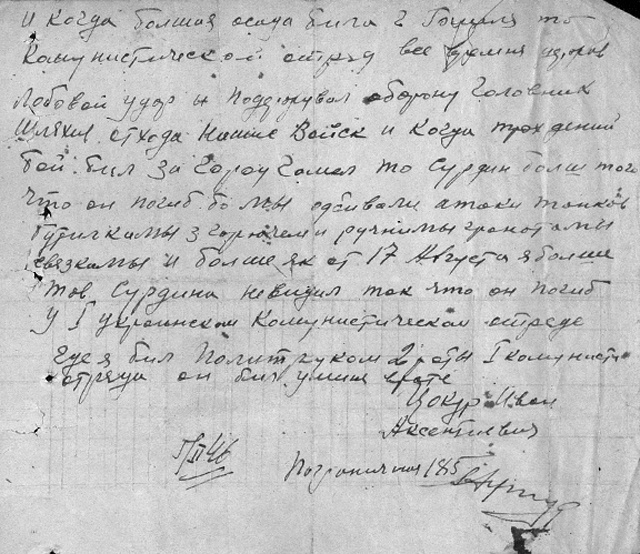 и когда болшая осада била в Гомиля то
Комунистической отряд все время
Лобовой удар и поддержувал оборону Головник
Шляхив отхода Наше Войск и когда
бой бил за город Гомел то Сурдин болш того
что он погиб бо мы одбивали атаки танков
Бутилкамы з горючем и ручнимы гранотамы
связкамы и болше як от 17 Августа я болше
тов Сурдина невидил так что он погиб
у I Украинском Комунистическом отреде
где я бил Политруком 2 роты I комунисти
отряда он бил у мине вроте
Цокур Иван
Аксентиевич
46
Погранична 185